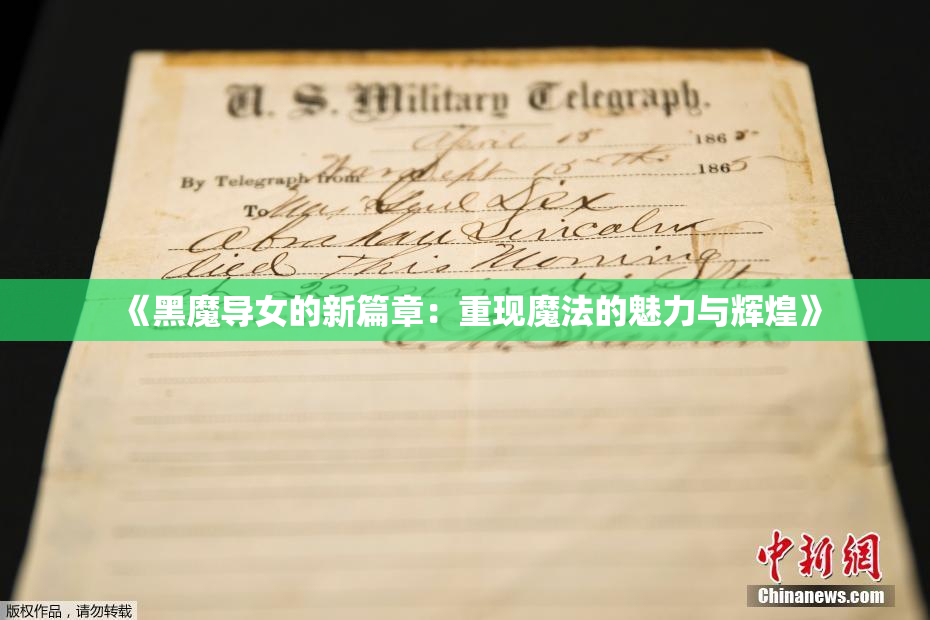 U. S. Military Telegraph.
April 15 1865
By Telegraph from War Dept 15th 1865
To Maj Genl Dix
Abraham Lincoln
died This Morning
at 22 minutes after
《黑魔导女的新篇章：重现魔法的魅力与辉煌》
中新网
Chinanews.com
版权作品，请勿转载